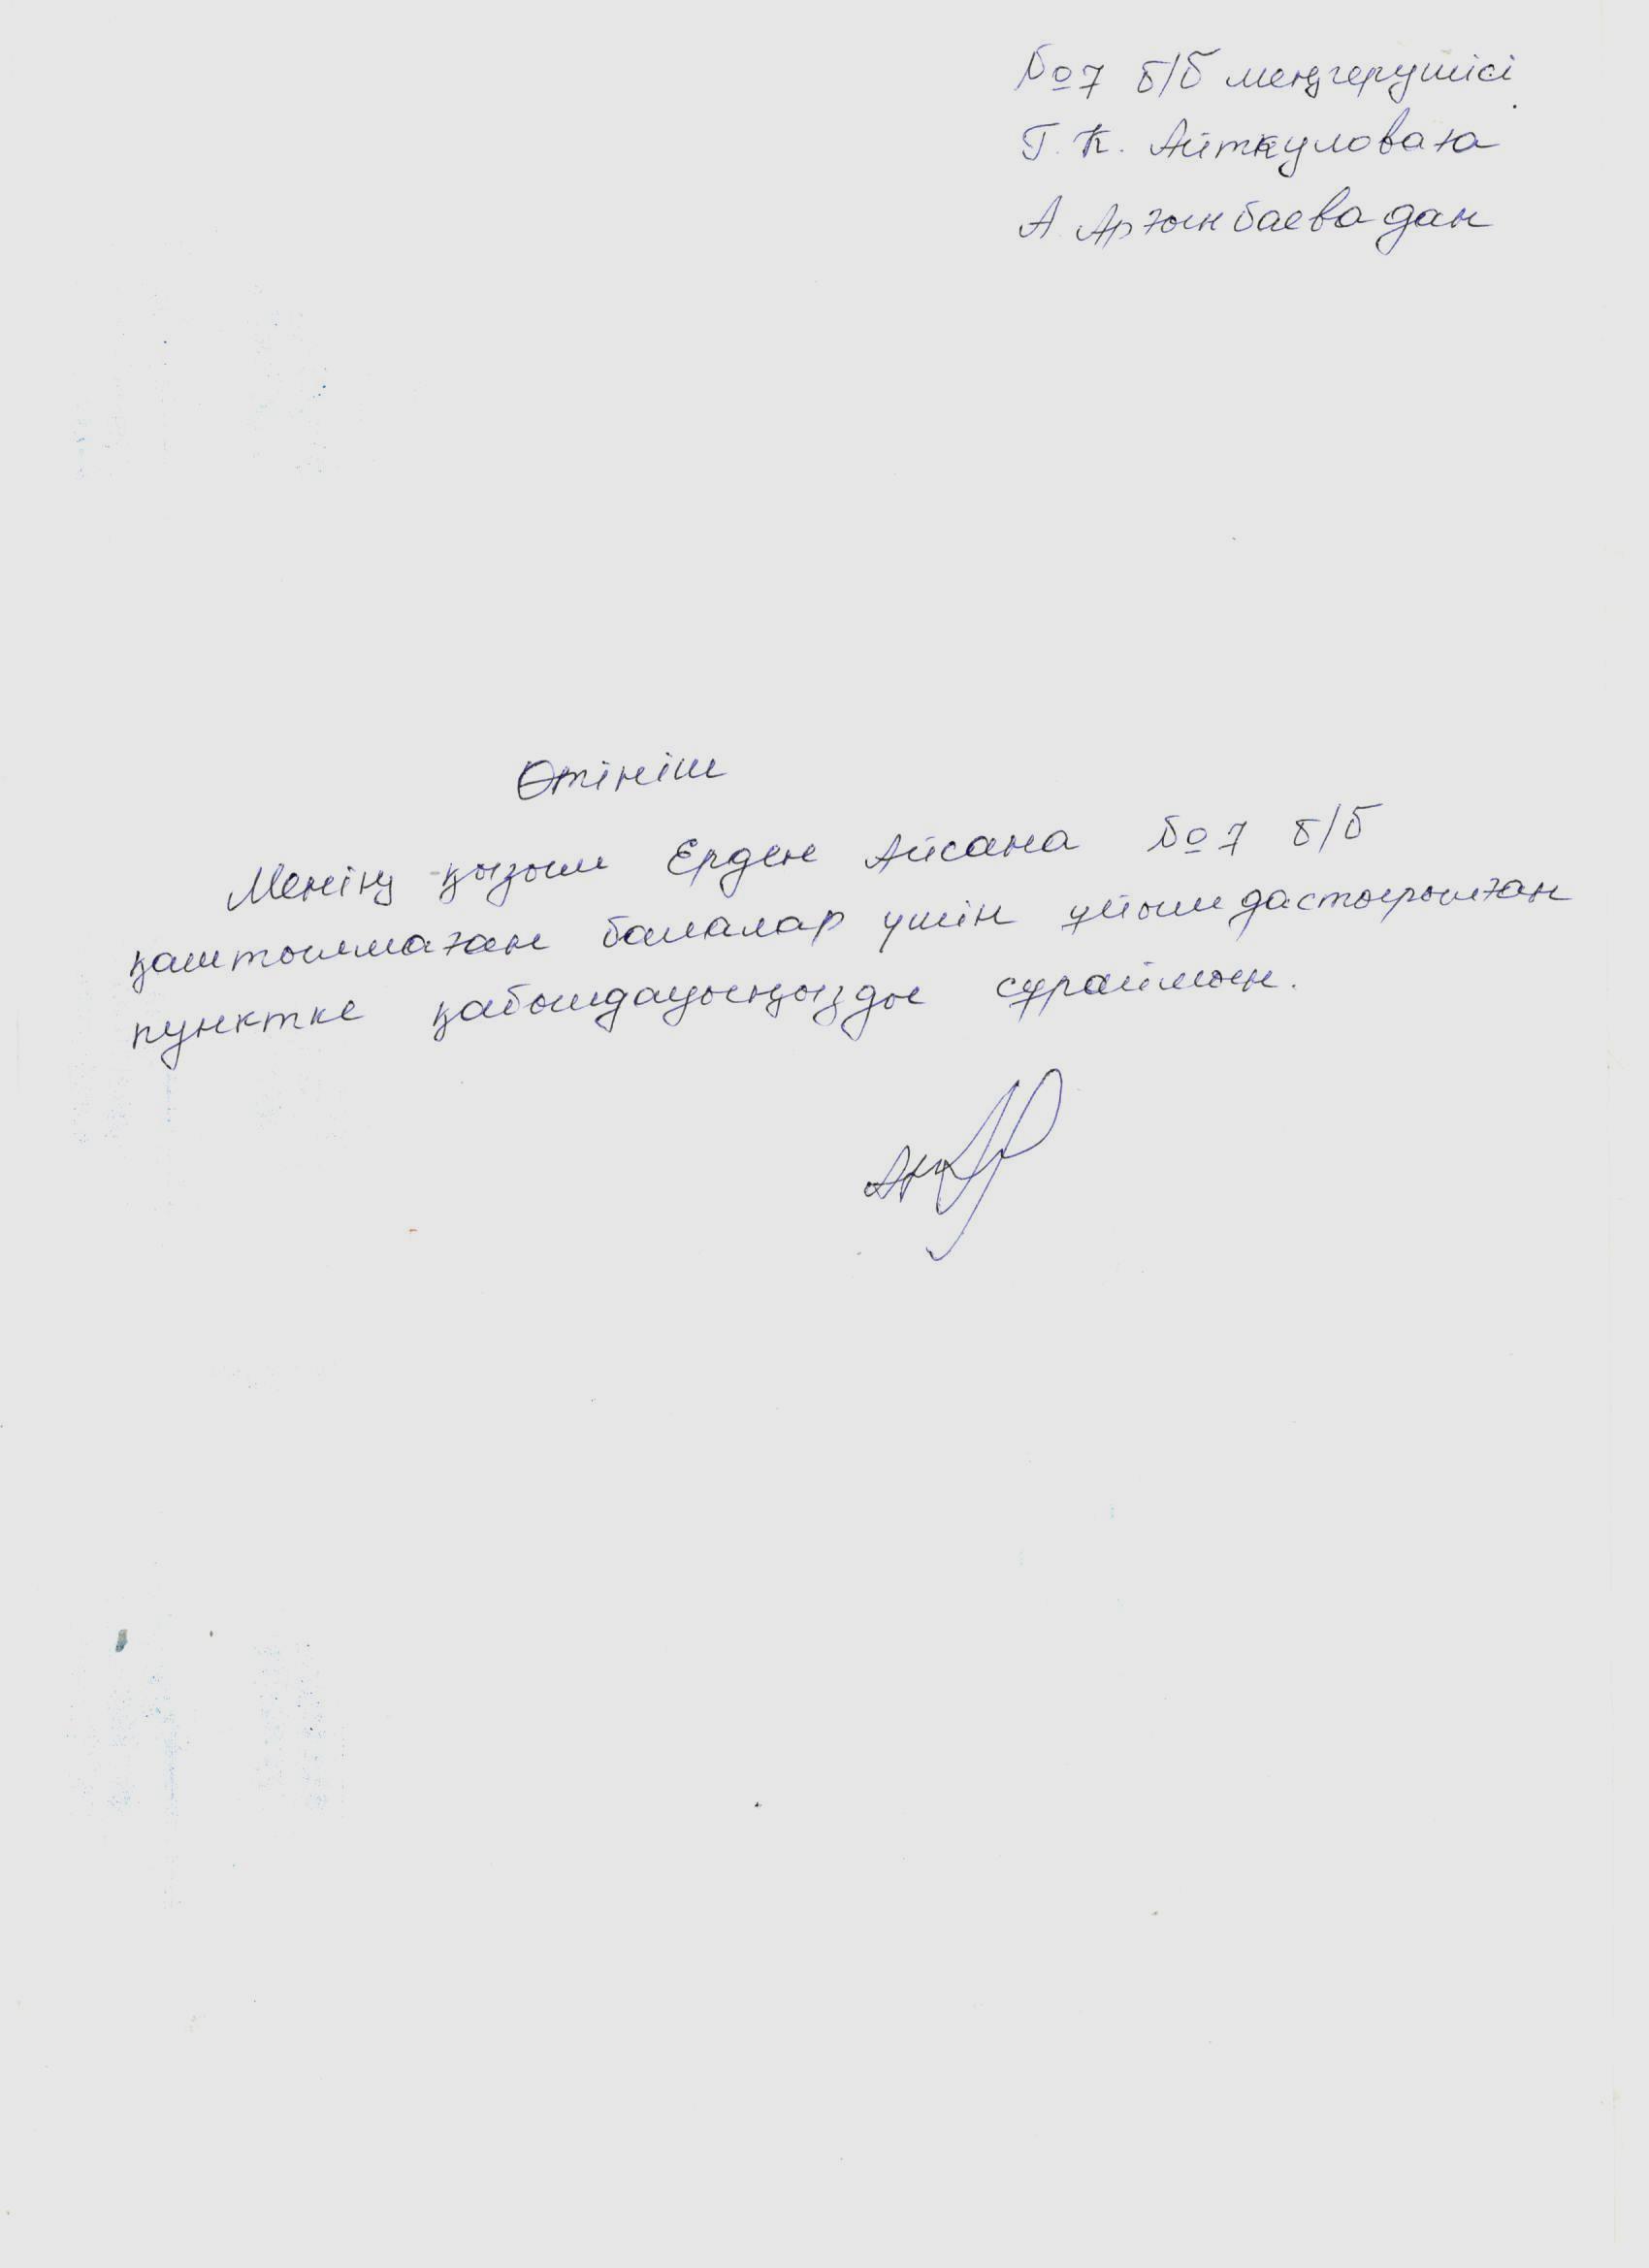 №7 б/б меңгерушісі
Г.К. Айткуловаға
А Арғынбаевадан
Өтініш
Менің қызым Ерден Айсана №7 б/б
қамтылмаған балалар үшін ұйымдастырылған
пунктке қабылдауыңызды сұраймын.